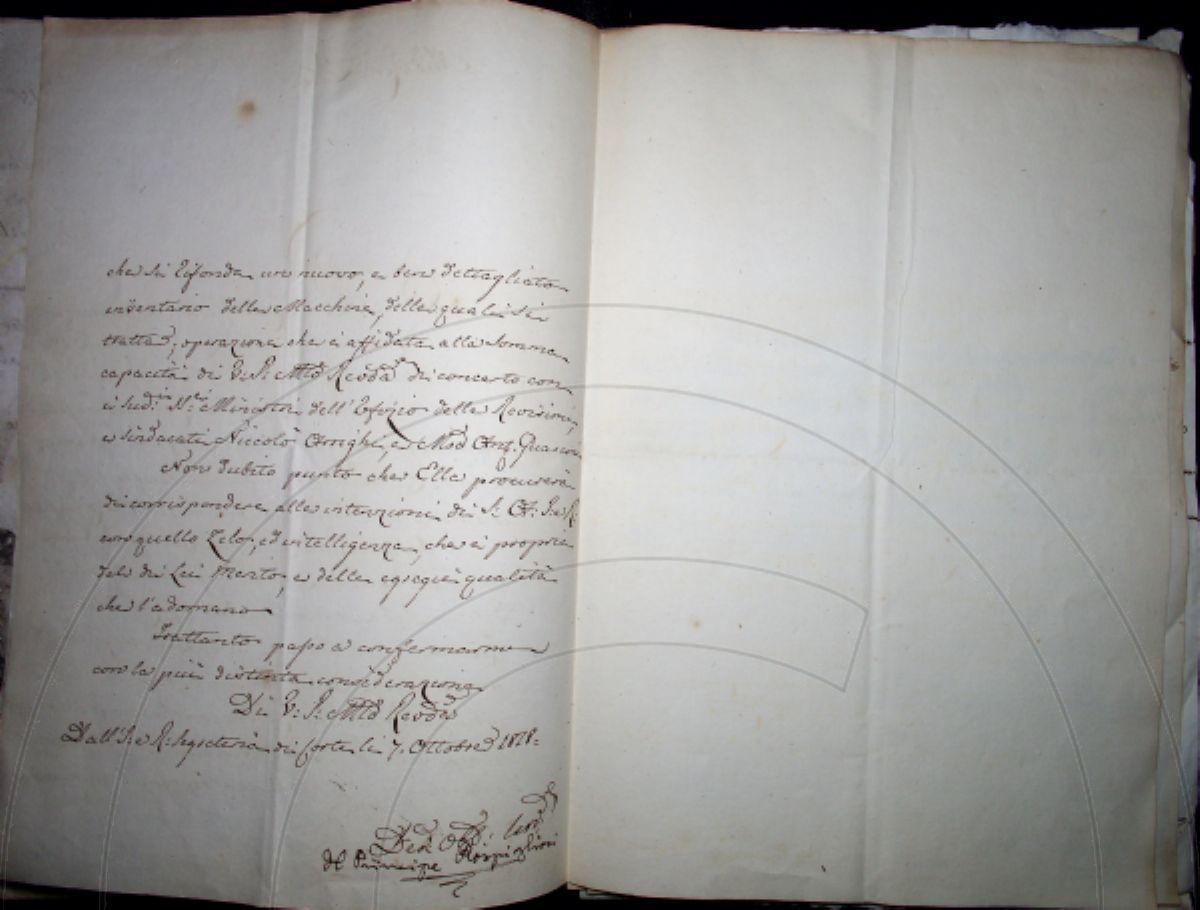 che si rifonda un nuovo, e ben dettagliato
inventario delle Macchine, delle quali si
tratta; operazione che è affidata alla somma
capacità di V. S. Mto Revda di concerto con
i sudi. SSri. Ministri dell'Ufizio delle Revisioni,
e Sindacati Niccolò Arrighi, e Ant.
Non dubito punto che Ella procurerà
di corrispondere alle intenzioni di S. A. I. e R.
con quello zelo, ed intelligenza, che è propria
del di Lei merito, e delle egregie qualità
che l'adornano
Frattanto passo a confermarmi
con la più distinta considerazione
Di V. S. Mto Revda
Dall'I. e R. Segreteria di Corte li 7. Ottobre 1818=
Dev. Obb. Serv.
Il Principe Rospigliosi